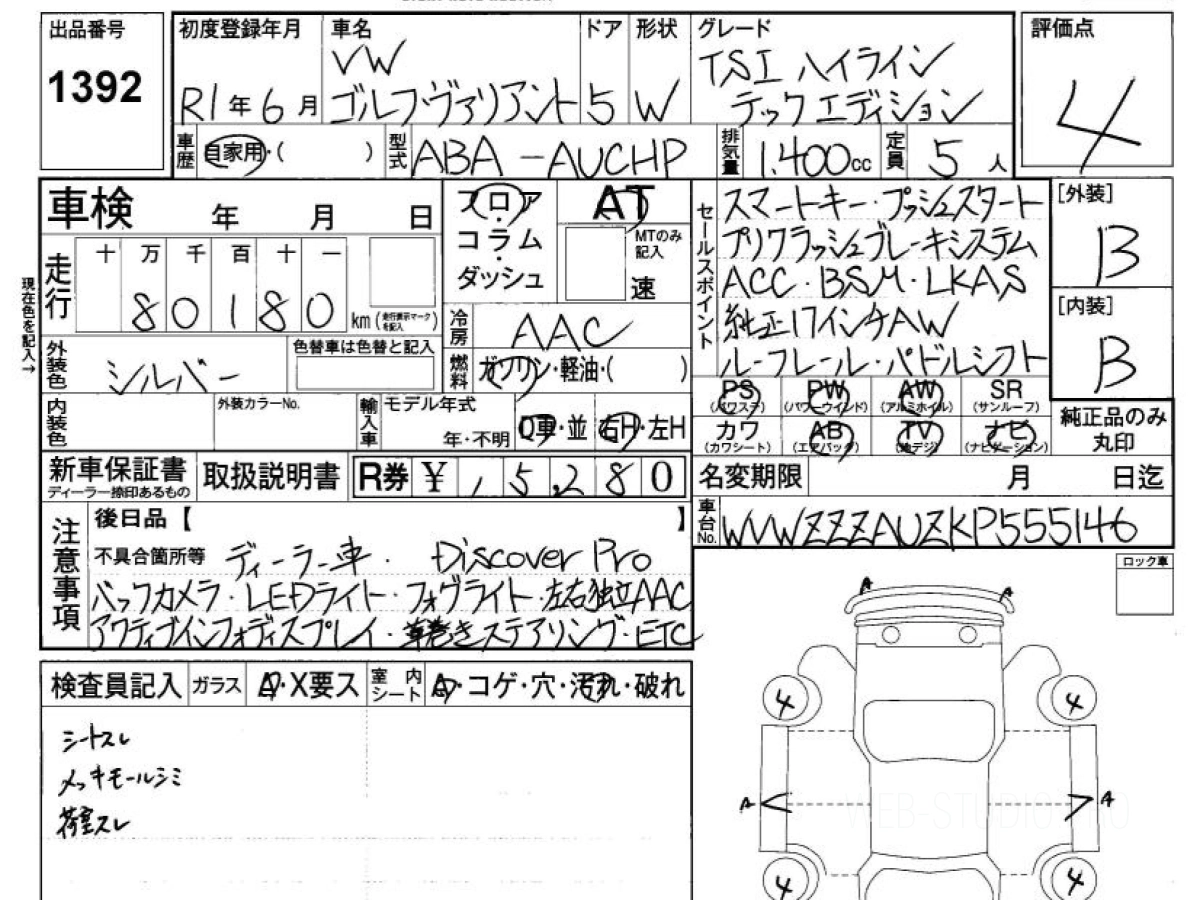 出品番号
1392
初度登録年月
R1年6月
車名
VW
ゴルフ・ヴァリアント
ドア
5
形状
W
グレード
TSI ハイライン
テックエディション
評価点
4
車歴
自家用・( )
型式
ABA-AUCHP
排気量
1,400cc
定員
5人
車検 年 月 日
走行
十 万 千 百 十 一
8 0 1 8 0
km (走行表示マークを記入)
現在色を記入→
外装色
シルバー
色替車は色替と記入
内装色
外装カラーNo.
輸入車
モデル年式
年・不明
D車・並
右H・左H
フロア
・
コラム
・
ダッシュ
AT
MTのみ記入
速
冷房
AAC
燃料
ガソリン・軽油・( )
セールスポイント
スマートキー・プッシュスタート
プリクラッシュブレーキシステム
ACC・BSM・LKAS
純正17インチAW
ルーフレール・パドルシフト
[外装]
B
[内装]
B
PS (パワステ)
PW (パワーウインド)
AW (アルミホイル)
SR (サンルーフ)
カワ (カワシート)
AB (エアバッグ)
TV (地デジ)
ナビ (ナビゲーション)
純正品のみ丸印
新車保証書
ディーラー捺印あるもの
取扱説明書
R券 ¥ 15,280
名変期限 月 日迄
車台No.
WVWZZZAUZKP555146
注意事項
後日品【 】
不具合箇所等 ディーラー車・ Discover Pro
バックカメラ・LEDライト・フォグライト・左右独立AAC
アクティブインフォディスプレイ・革巻きステアリング・ETC
ロック車
検査員記入
ガラス
A・X要ス
室内シート
A・コゲ・穴・汚れ・破れ
シートスレ
メッキモールシミ
荷室スレ
A A
4 4
A A
4 4
WEB-STUDIO PRO